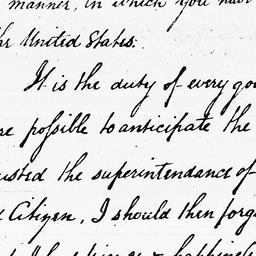 manner, in which you have
the United States:
It is the duty of every go
re poſsible to anticipate the
usted the superintendance of
Citizen, I should then forg